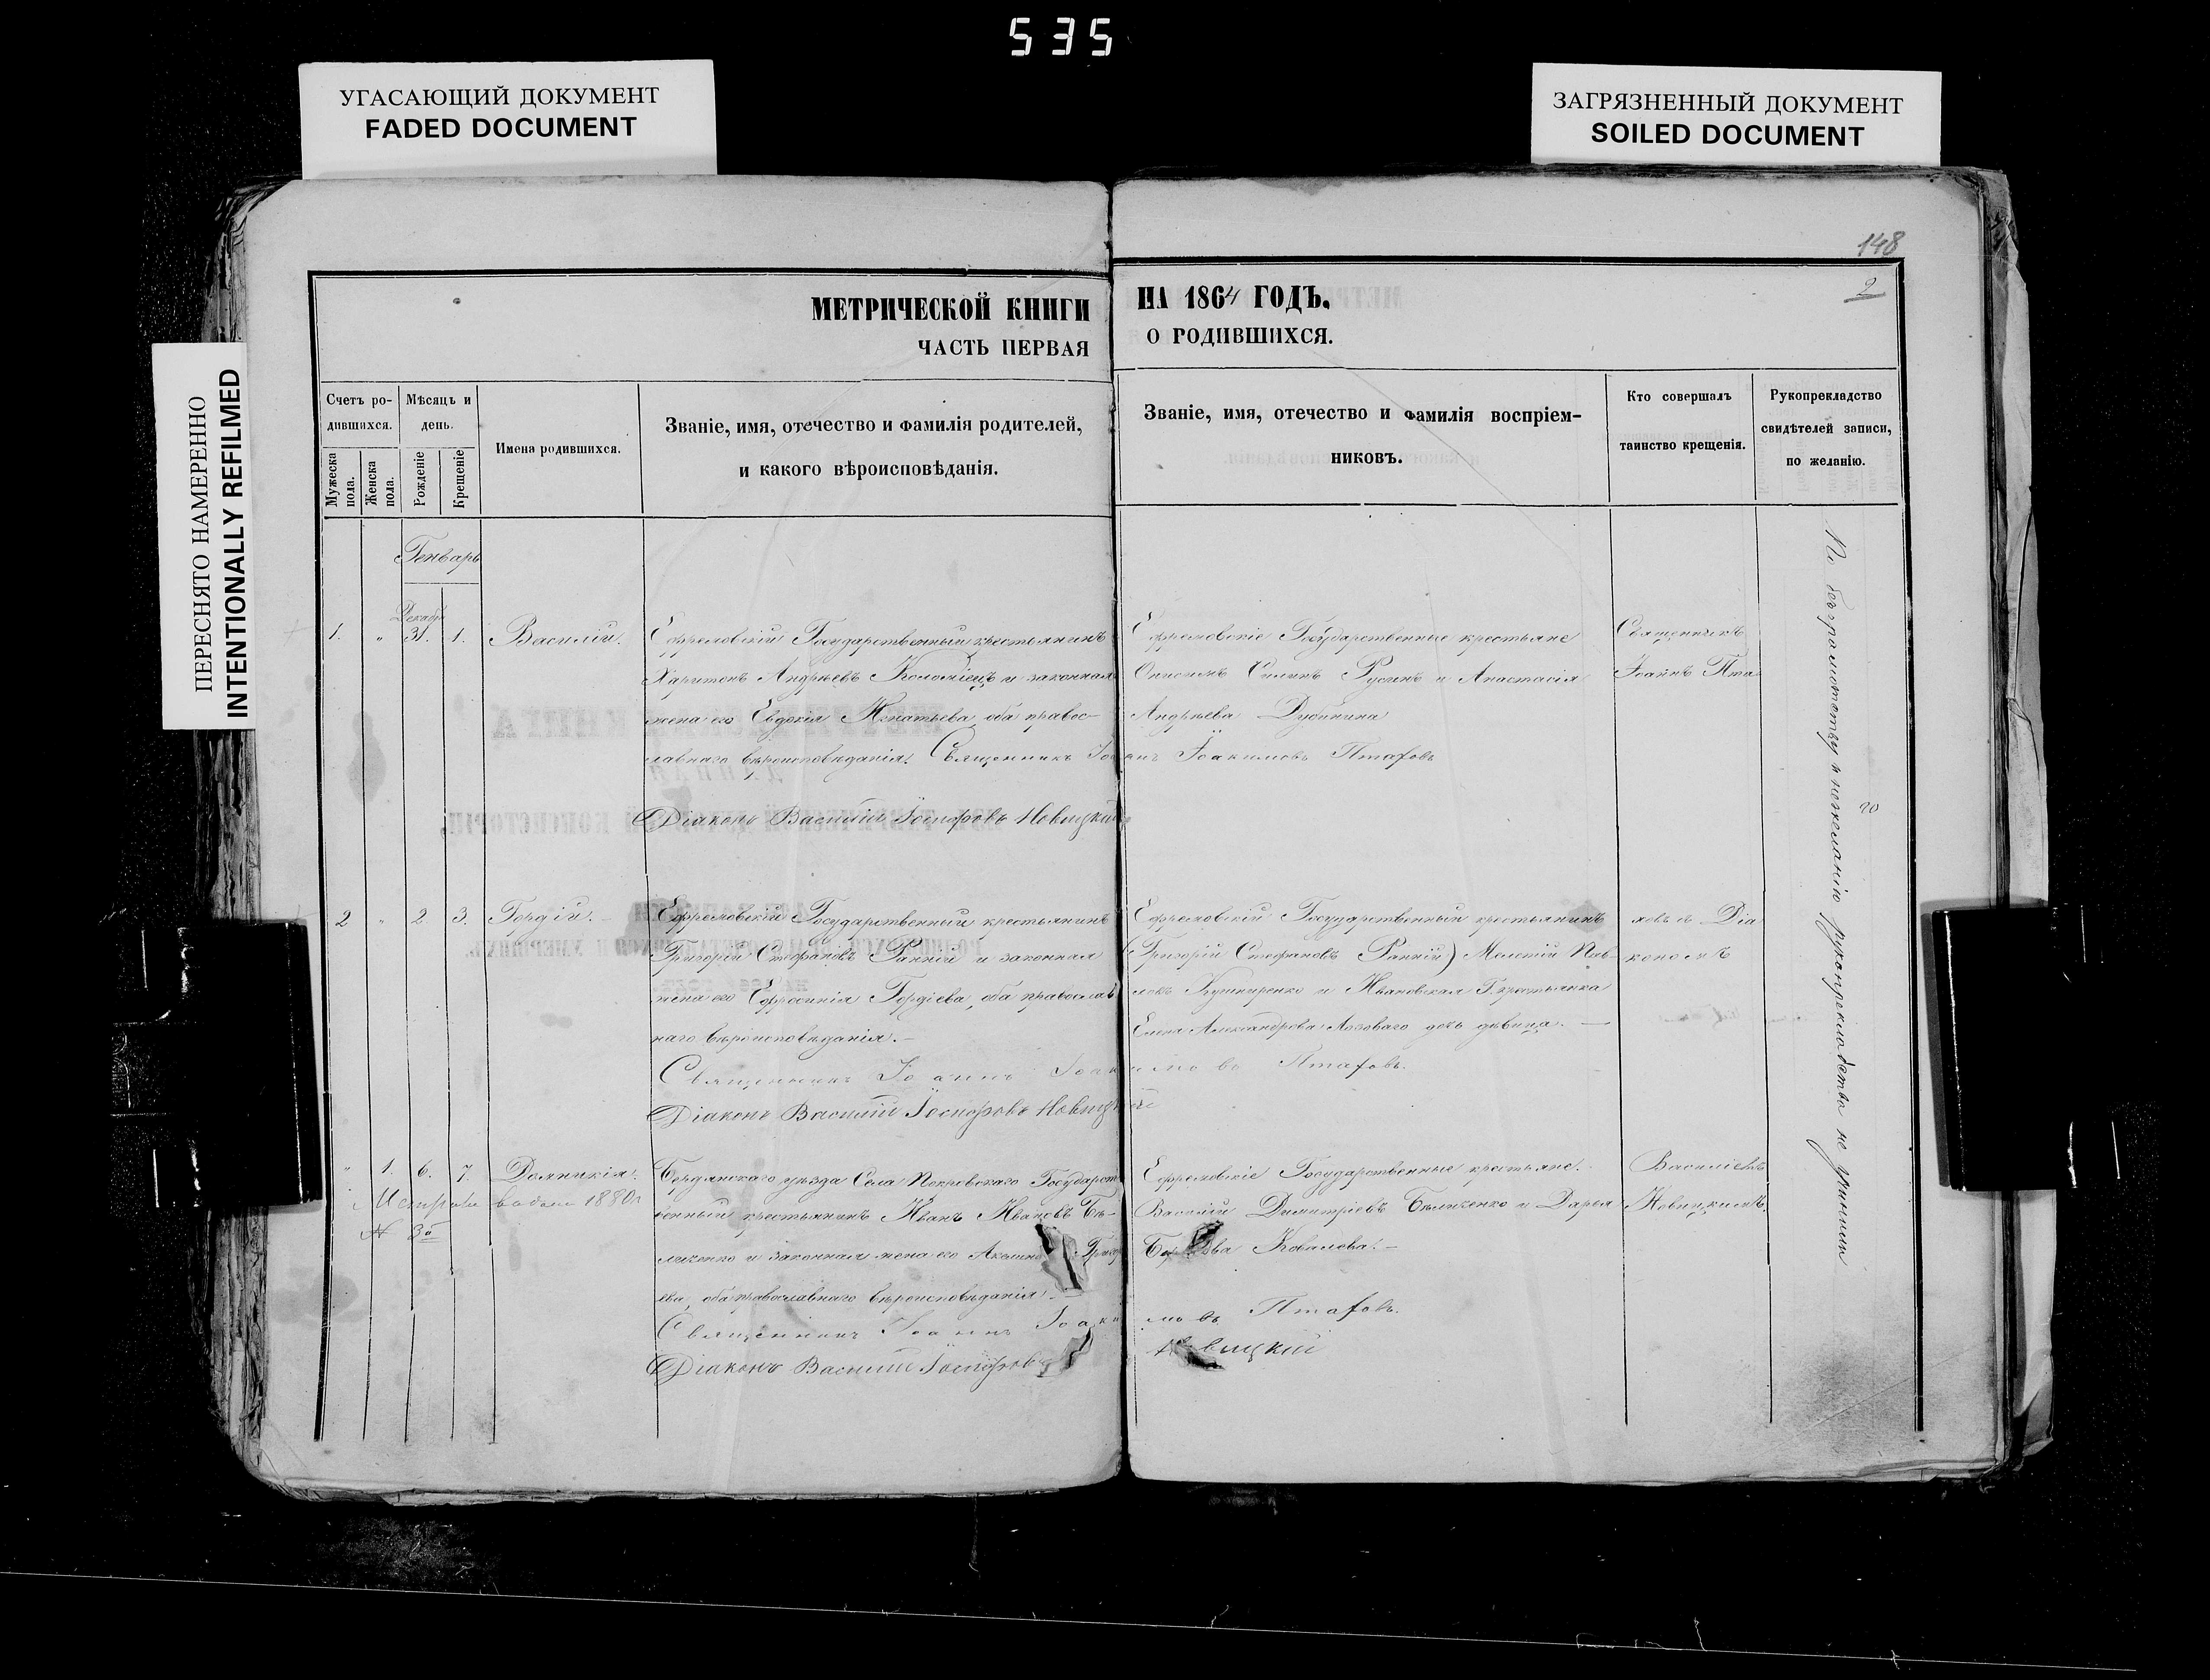 535
УГАСАЮЩИЙ ДОКУМЕНТ
FADED DOCUMENT
ЗАГРЯЗНЕННЫЙ ДОКУМЕНТ
SOILED DOCUMENT
ПЕРЕСНЯТО НАМЕРЕННО
INTENTIONALLY REFILMED
148
2
МЕТРИЧЕСКОЙ КНИГИ НА 1864 ГОДЪ.
ЧАСТЬ ПЕРВАЯ О РОДИВШИХСЯ.
Счетъ ро-
дившихся.
Мужеска
пола.
Женска
пола.
Мѣсяцъ и
день.
Рожденіе
Крещеніе
Имена родившихся.
Званіе, имя, отечество и фамилія родителей,
и какого вѣроисповѣданія.
Званіе, имя, отечество и фамилія воспріем-
никовъ.
Кто совершалъ
таинство крещенія.
Рукоприкладство
свидѣтелей записи,
по желанію.
Генварь
Декабр
1. " 31. 1. Василій.
Ефремовскій Государственный крестьянинъ
Харитонъ Андрѣевъ Коломіецъ и законная
жена его Евдокія Игнатьева, оба правос-
лавнаго вѣроисповѣданія. Священникъ Іоаннъ Іоакимовъ Птафовъ
Діаконъ Василій Іосифовъ Новицкій
Ефремовскіе Государственные крестьяне
Онисимъ Силинъ Русинъ и Анастасія
Андрѣева Дубинина
Священникъ
Іоаннъ Пта
2 " 2. 3. Гордій.
Ефремовскій Государственный крестьянинъ
Григорій Стефановъ Ранній и законная
жена его Ефросинія Гордіева, оба православ
наго вѣроисповѣданія.
Священникъ Іоаннъ Іоакимовъ Птафовъ.
Діаконъ Василій Іосифовъ Новицкій
Ефремовскій Государственный крестьянинъ
(Григорій Стефановъ Ранній) Мелетій Пав-
ловъ Кушниренко и Ивановская Г. крестьянка
Елена Александрова Лозоваго дочь дѣвица.
ховъ съ Діа
кономъ
" 1. 6. 7. Домникія.
выдана 1880г
№ 30
Бердянскаго уѣзда Села Покровскаго Государст
венный крестьянинъ Иванъ Ивановъ Бѣ-
ликенко и законная жена его Акелина Григор
ева, оба православнаго вѣроисповѣданія.
Священникъ Іоаннъ Іоакимовъ Птафовъ.
Діаконъ Василій Іосифовъ Новицкій
Ефремовскіе Государственные крестьяне.
Василій Димитріевъ Бѣликенко и Дарья
Ковалева.
Василіемъ
Новицкимъ.
По безграмотству и нежеланію рукоприкладства не учинили